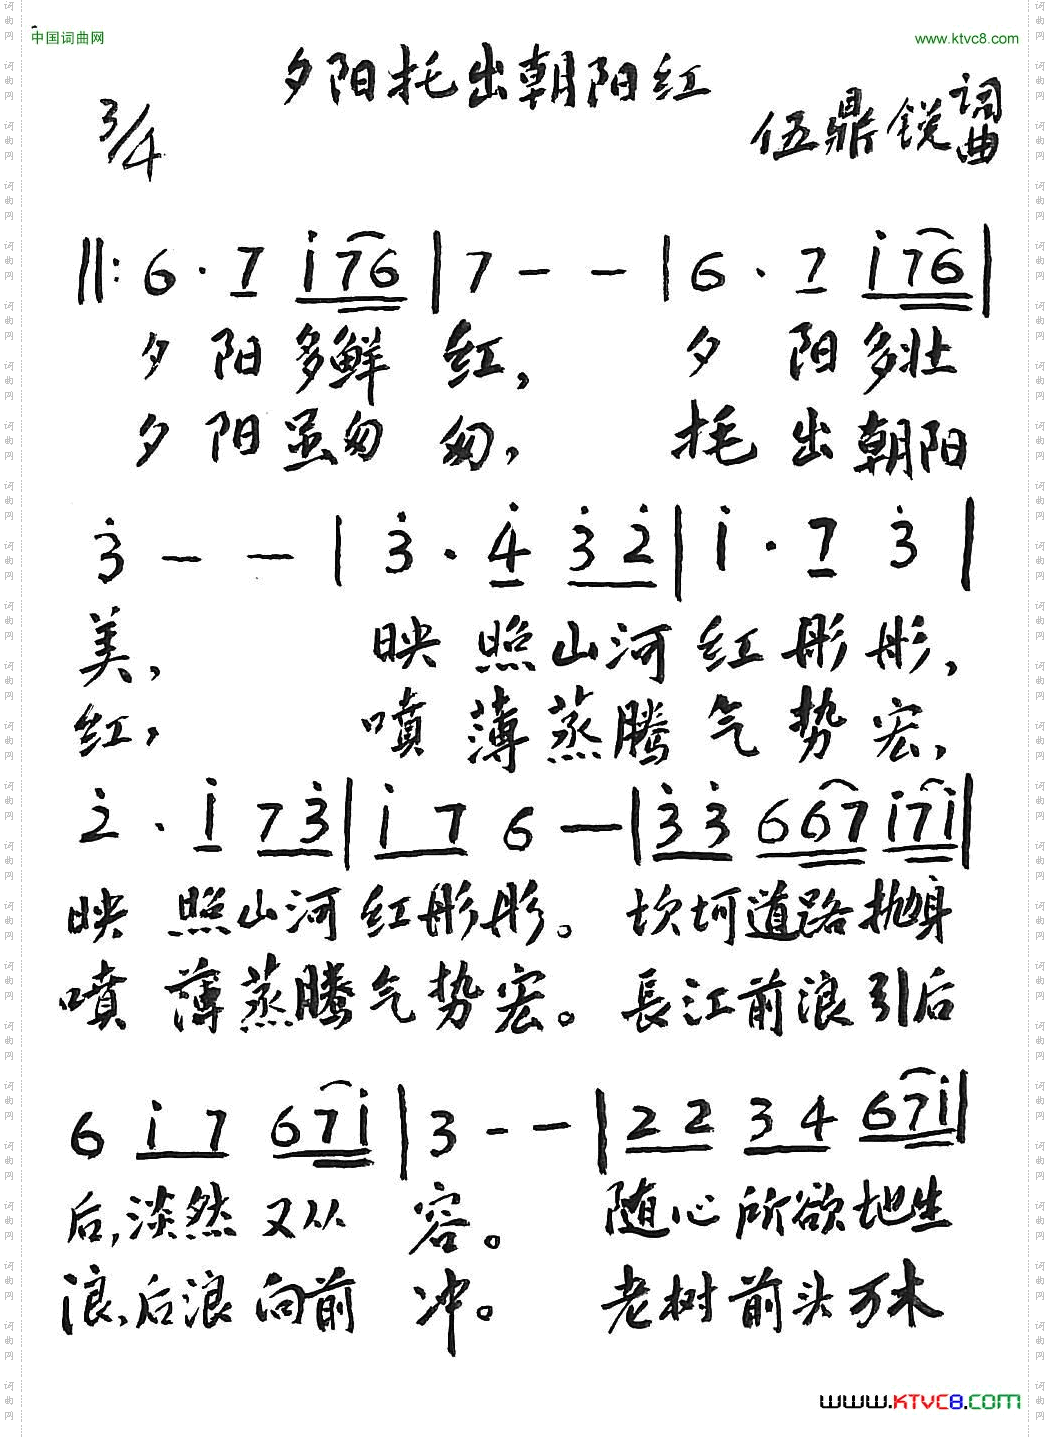 中国词曲网
www.ktvc8.com
夕阳托出朝阳红
3/4
伍鼎锐 词曲
‖: 6 · 7 i 7 6 | 7 – – | 6 · 7 i 7 6 |
夕阳多鲜红, 夕阳多壮
夕阳虽匆匆, 托出朝阳
3 – – | 3 · 4 3 2 | i · 7 3 |
美, 映照山河红彤彤,
红, 噴薄蒸腾气势宏,
2 · i 7 3 | i 7 6 – | 3 3 6 6 7 i 7 i |
映照山河红彤彤。坎坷道路抛身
噴薄蒸腾气势宏。長江前浪引后
6 i 7 6 7 i | 3 – – | 2 2 3 4 6 7 i |
后,淡然又从容。 随心所欲地生
浪、后浪向前冲。 老树前头万木
www.KTVC8.com